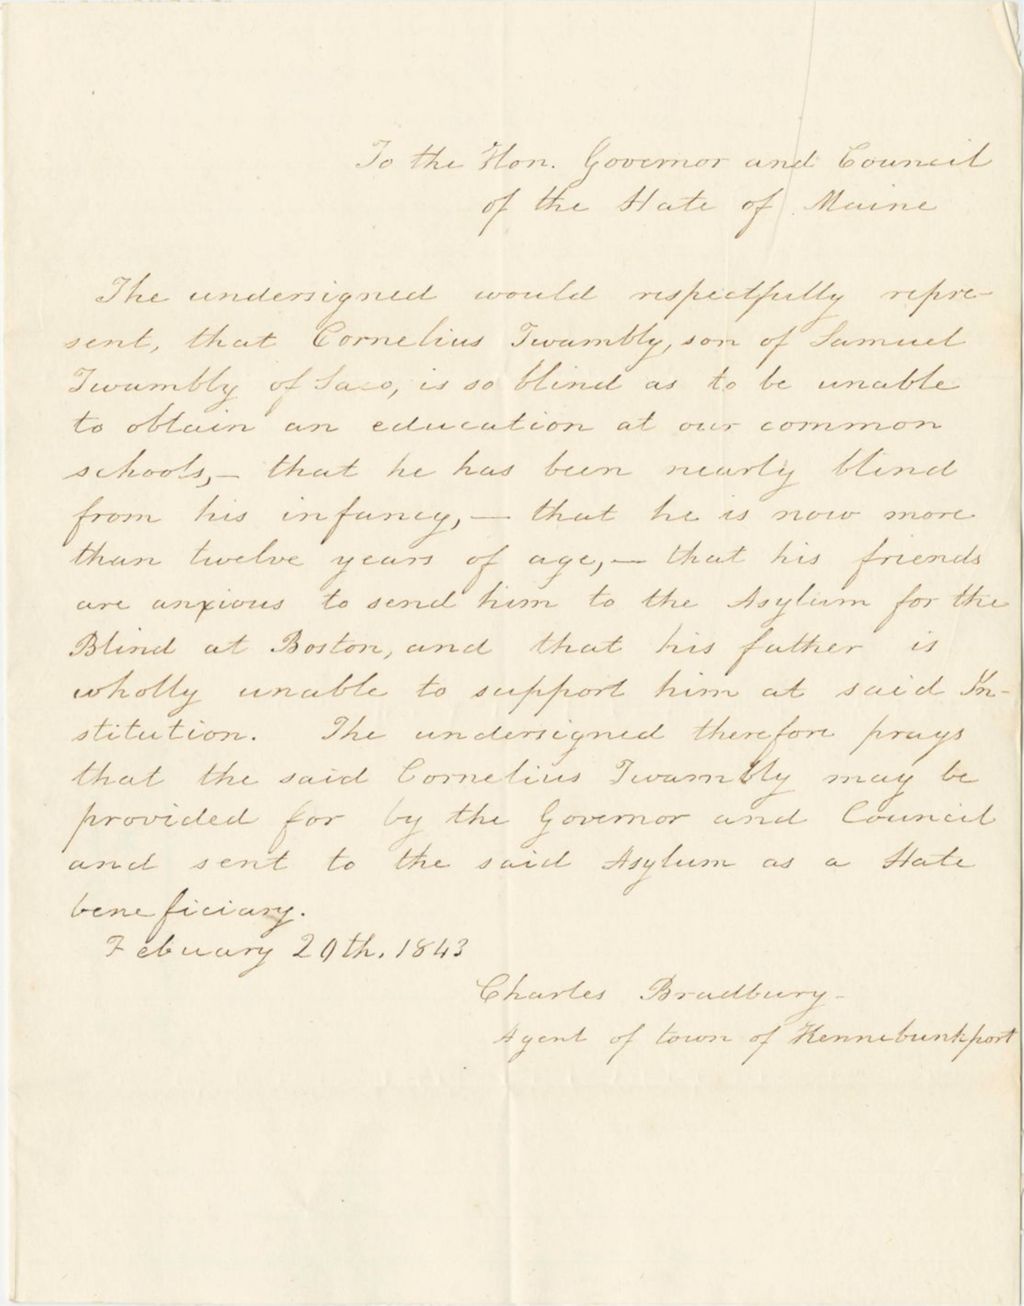 To the Hon. Governor and Council
of the State of Maine
The undersigned would respectfully repre-
sent, that Cornelius Twambly, son of Samuel
Twambly of Saco, is so blind as to be unable
to obtain an education at our common
schools,— that he has been nearly blind
from his infancy,— that he is now more
than twelve years of age,— that his friends
are anxious to send him to the Asylum for the
Blind at Boston, and that his father is
wholly unable to support him at said In-
stitution. The undersigned therefore prays
that the said Cornelius Twambly may be
provided for by the Governor and Council
and sent to the said Asylum as a State
beneficiary.
Febuary 20th. 1843
Charles Bradbury-
Agent of town of Kennebunkport